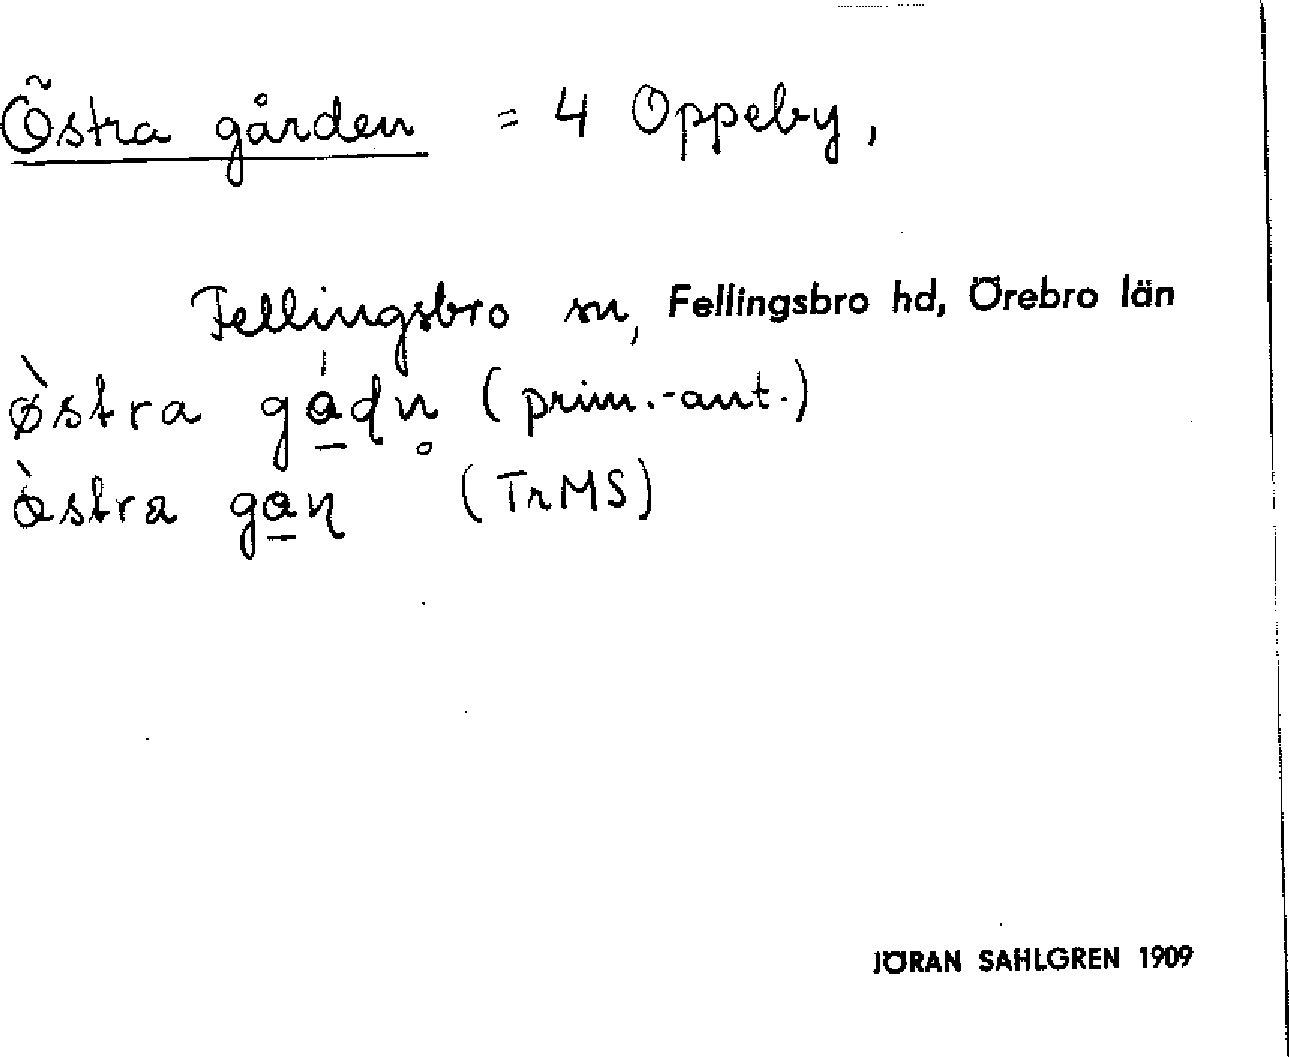 Östra gården = 4 Oppeby,
Fellingsbro sn, Fellingsbro hd, Örebro län
ø̀stra gá̱ḍṇ̊ (prim.-ant.)
àstra ga̱ṇ (TrMS)
JÖRAN SAHLGREN 1909